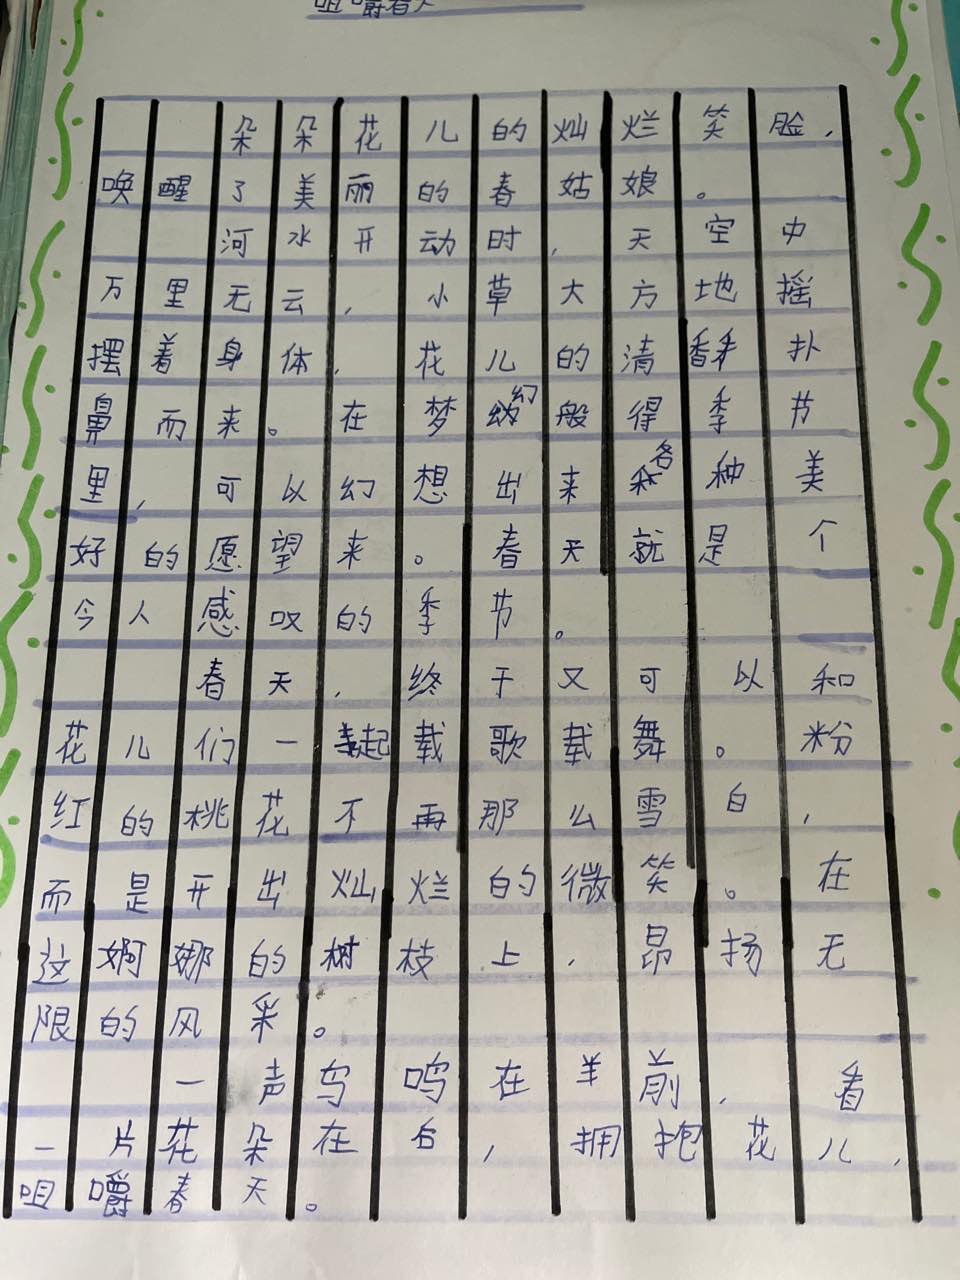 咀嚼春天
朵朵花儿的灿烂笑脸，
唤醒了美丽的春姑娘。
河水开动时，天空中
万里无云，小草大方地摇
摆着身体，花儿的清香扑
鼻而来。在梦幻般得季节
里，可以幻想出来各种美
好的愿望来。春天就是个
今人感叹的季节。
春天，终于又可以和
花儿们一起载歌载舞。粉
红的桃花不再那么雪白，
而是开出灿烂的微笑。在
这婀娜的树枝上，昂扬无
限的风采。
一声鸟鸣在羊前，看
一片花朵在右，拥抱花儿，
咀嚼春天。